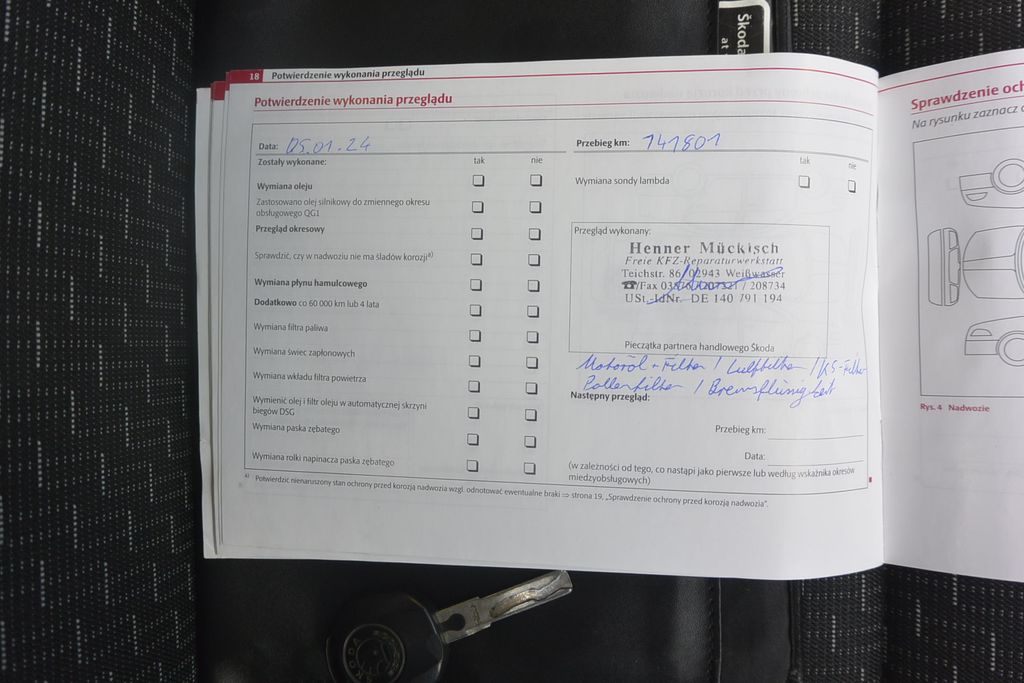 Škoda
at
18 Potwierdzenie wykonania przeglądu
Potwierdzenie wykonania przeglądu
Data: 05.01.24
Przebieg km: 141801
Zostały wykonane: tak nie
tak nie
Wymiana oleju
Zastosowano olej silnikowy do zmiennego okresu
obsługowego QG1
Przegląd okresowy
Sprawdzić, czy w nadwoziu nie ma śladów korozjiᵃ⁾
Wymiana płynu hamulcowego
Dodatkowo co 60 000 km lub 4 lata
Wymiana filtra paliwa
Wymiana świec zapłonowych
Wymiana wkładu filtra powietrza
Wymienić olej i filtr oleju w automatycznej skrzyni
biegów DSG
Wymiana paska zębatego
Wymiana rolki napinacza paska zębatego
Wymiana sondy lambda
Przegląd wykonany:
Henner Mückisch
Freie KFZ-Reparaturwerkstatt
Teichstr. 86/02943 Weißwasser
☎/Fax / 208734
USt.-IdNr. DE 140 791 194
Pieczątka partnera handlowego Škoda
Motoröl + Filter / Luftfilter / KS-Filter
Pollenfilter / Bremsflüssigkeit
Następny przegląd:
Przebieg km:
Data:
(w zależności od tego, co nastąpi jako pierwsze lub według wskaźnika okresów
miedzyobsługowych)
ᵃ⁾ Potwierdzić nienaruszony stan ochrony przed korozją nadwozia wzgl. odnotować ewentualne braki ⇒ strona 19, „Sprawdzenie ochrony przed korozją nadwozia”.
Sprawdzenie och
Na rysunku zaznacz
Rys. 4 Nadwozie